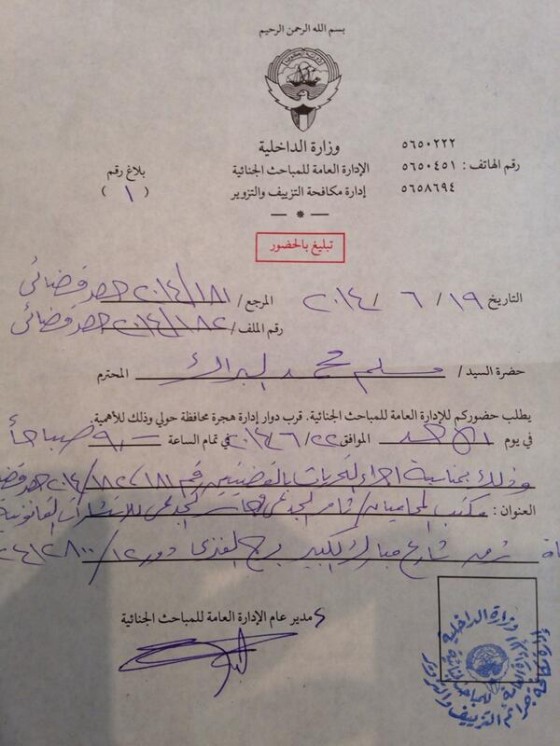 بسم الله الرحمن الرحيم
وزارة الداخلية
الإدارة العامة للمباحث الجنائية
إدارة مكافحة التزييف والتزوير
٥٦٥٠٢٢٢
رقم الهاتف : ٥٦٥٠٤٥١
٥٦٥٨٦٩٤
بلاغ رقم
( ١ )
تبليغ بالحضور
التاريخ ١٩ / ٦ / ٢٠١٤ المرجع / ٢٠١٤/١٨١ حصر قضائي
رقم الملف / ٢٠١٤/١٨٢ حصر قضائي
حضرة السيد / مسلم محمد البراك المحترم
يطلب حضوركم للإدارة العامة للمباحث الجنائية. قرب دوار إدارة هجرة محافظة حولي وذلك للأهمية.
في يوم الأحد الموافق ٢٠١٤/٦/٢٢ في تمام الساعة ٩٫٠٠ صباحاً
وذلك بمناسبة اجراء التحريات بالقضيتين رقم ١٨١، ١٨٢/٢٠١٤ حصر
العنوان : مكتب المحاميان / ثامر الجدعي للاستشارات القانونية
شرق شارع مبارك الكبير برج دور ١٢
مدير عام الإدارة العامة للمباحث الجنائية
وزارة الداخلية
الإدارة العامة للمباحث الجنائية
إدارة مكافحة جرائم التزييف والتزوير